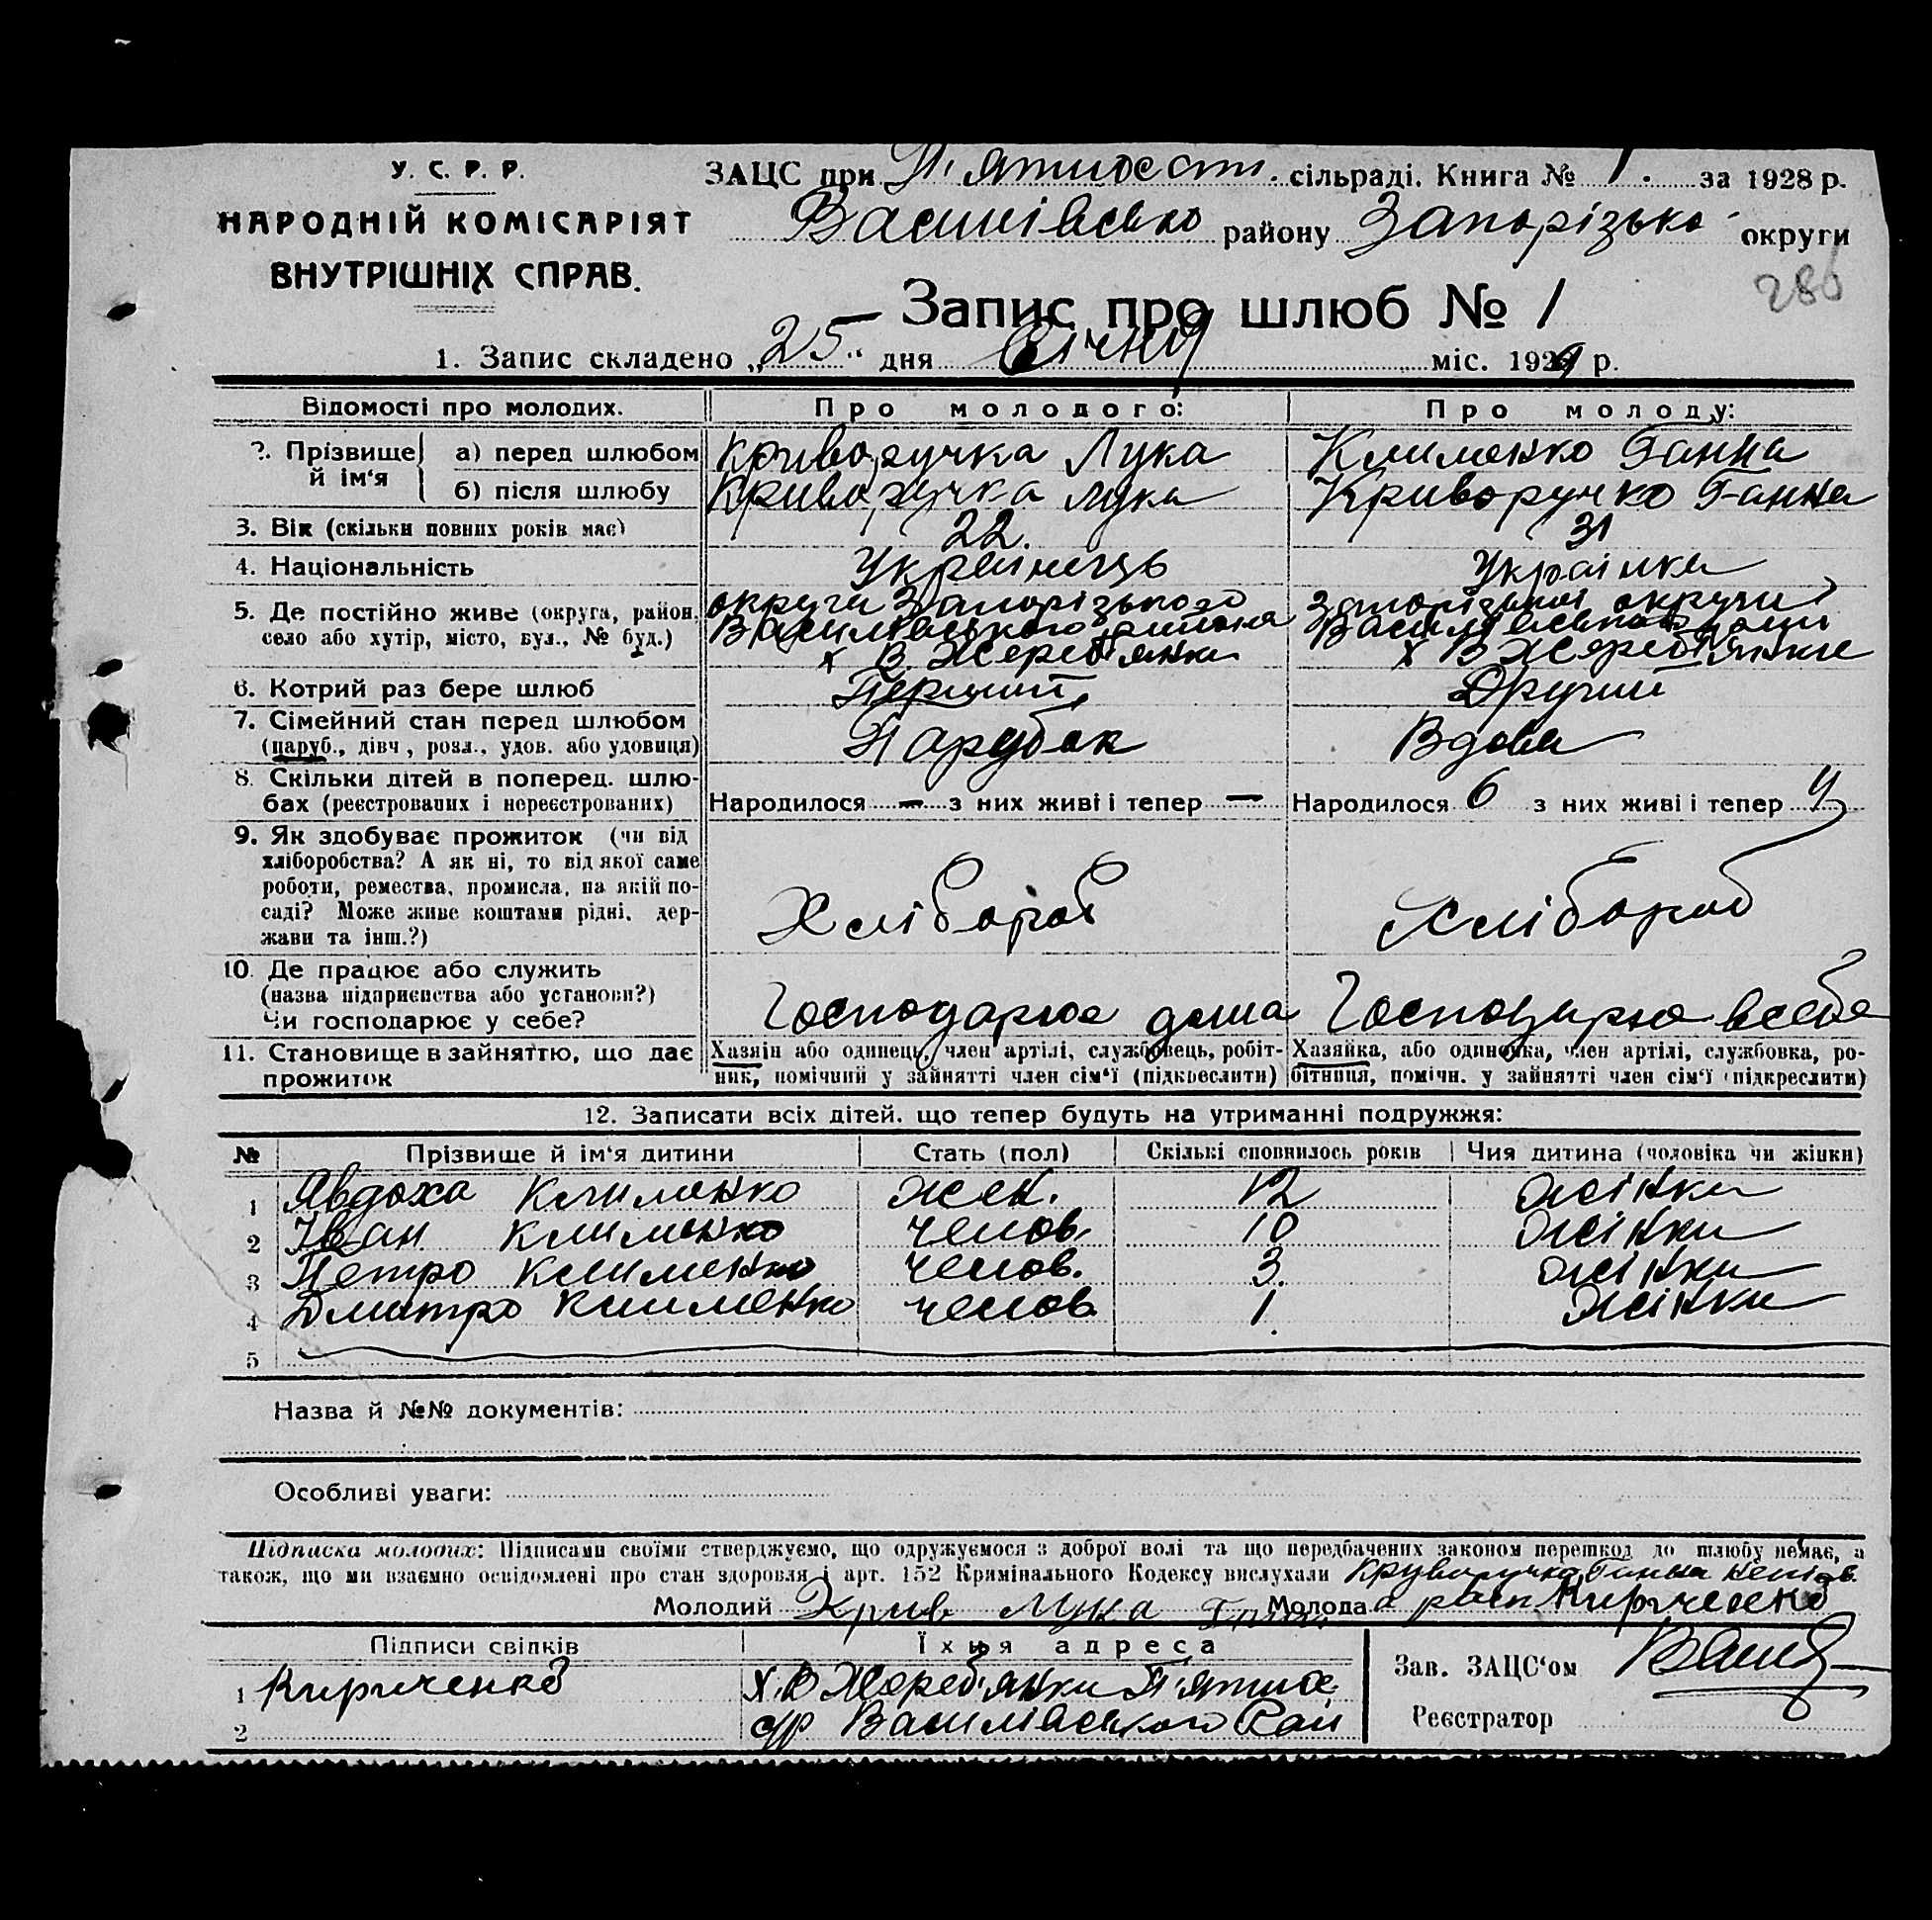 У. С. Р. Р.
НАРОДНІЙ КОМІСАРІЯТ
ВНУТРІШНІХ СПРАВ.
ЗАЦС при П'ятихат. сільраді. Книга № 1. за 1928 р.
Василівсько району Запорізько округи
286
Запис про шлюб № 1
1. Запис складено „25“ дня Січня міс. 1929 р.
Відомості про молодих. Про молодого: Про молоду:
2. Прізвище й ім‘я а) перед шлюбом Криворучка Лука Клименко Ганна
б) після шлюбу Криворучка Лука Криворучко Ганна
3. Вік (скільки повних років має) 22. 31
4. Національність Українець Українка
5. Де постійно живе (округа, район, округи Запорізького Запорізької округи
село або хутір, місто, вул., № буд.) Василівського района Василівського
х В. Жереб'янки х В Жереб'янки
6. Котрий раз бере шлюб Перший Другий
7. Сімейний стан перед шлюбом Парубок Вдова
(паруб., дівч., розл., удов. або удовиця)
8. Скільки дітей в поперед. шлю-
бах (реєстрованих і нереєстрованих) Народилося — з них живі і тепер — Народилося 6 з них живі і тепер 4
9. Як здобуває прожиток (чи від
хліборобства? А як ні, то від якої саме
роботи, ремества, промисла, на якій по-
саді? Може живе коштами рідні, дер-
жави та інш.?) Хлібороб Хлібороб
10. Де працює або служить
(назва підприємства або установи?)
Чи господарює у себе? Господарює дома Господарює всебе
11. Становище в зайняттю, що дає Хазяїн або одинець, член артілі, службовець, робіт- Хазяйка, або одиночка, член артілі, службовка, ро-
прожиток ник, помічний у зайнятті член сім‘ї (підкреслити) бітниця, помічн. у зайнятті член сім‘ї (підкреслити)
12. Записати всіх дітей. що тепер будуть на утриманні подружжя:
№ Прізвище й ім‘я дитини Стать (пол) Скількі сповнилось років Чия дитина (чоловіка чи жінки)
1 Явдоха Клименко жен. 12 жінки
2 Іван Клименко челов. 10 жінки
3 Петро Клименко челов. 3. жінки
4 Дмитро Клименко челов 1. жінки
5
Назва й №№ документів:
Особливі уваги:
Підписка молодих: Підписами своїми стверджуємо, що одружуємося з доброї волі та що передбачених законом перешкод до шлюбу немає, а
також, що ми взаємно освідомлені про стан здоровля і арт. 152 Кримінального Кодексу вислухали Криворучка Ганна
Молодий Крив Лука Молода Кириченко
Підписи свідків Їхня адреса
1 Кириченко х. В Жереб'янки
2 с/р Василівського Рай
Зав. ЗАЦС‘ом
Реєстратор